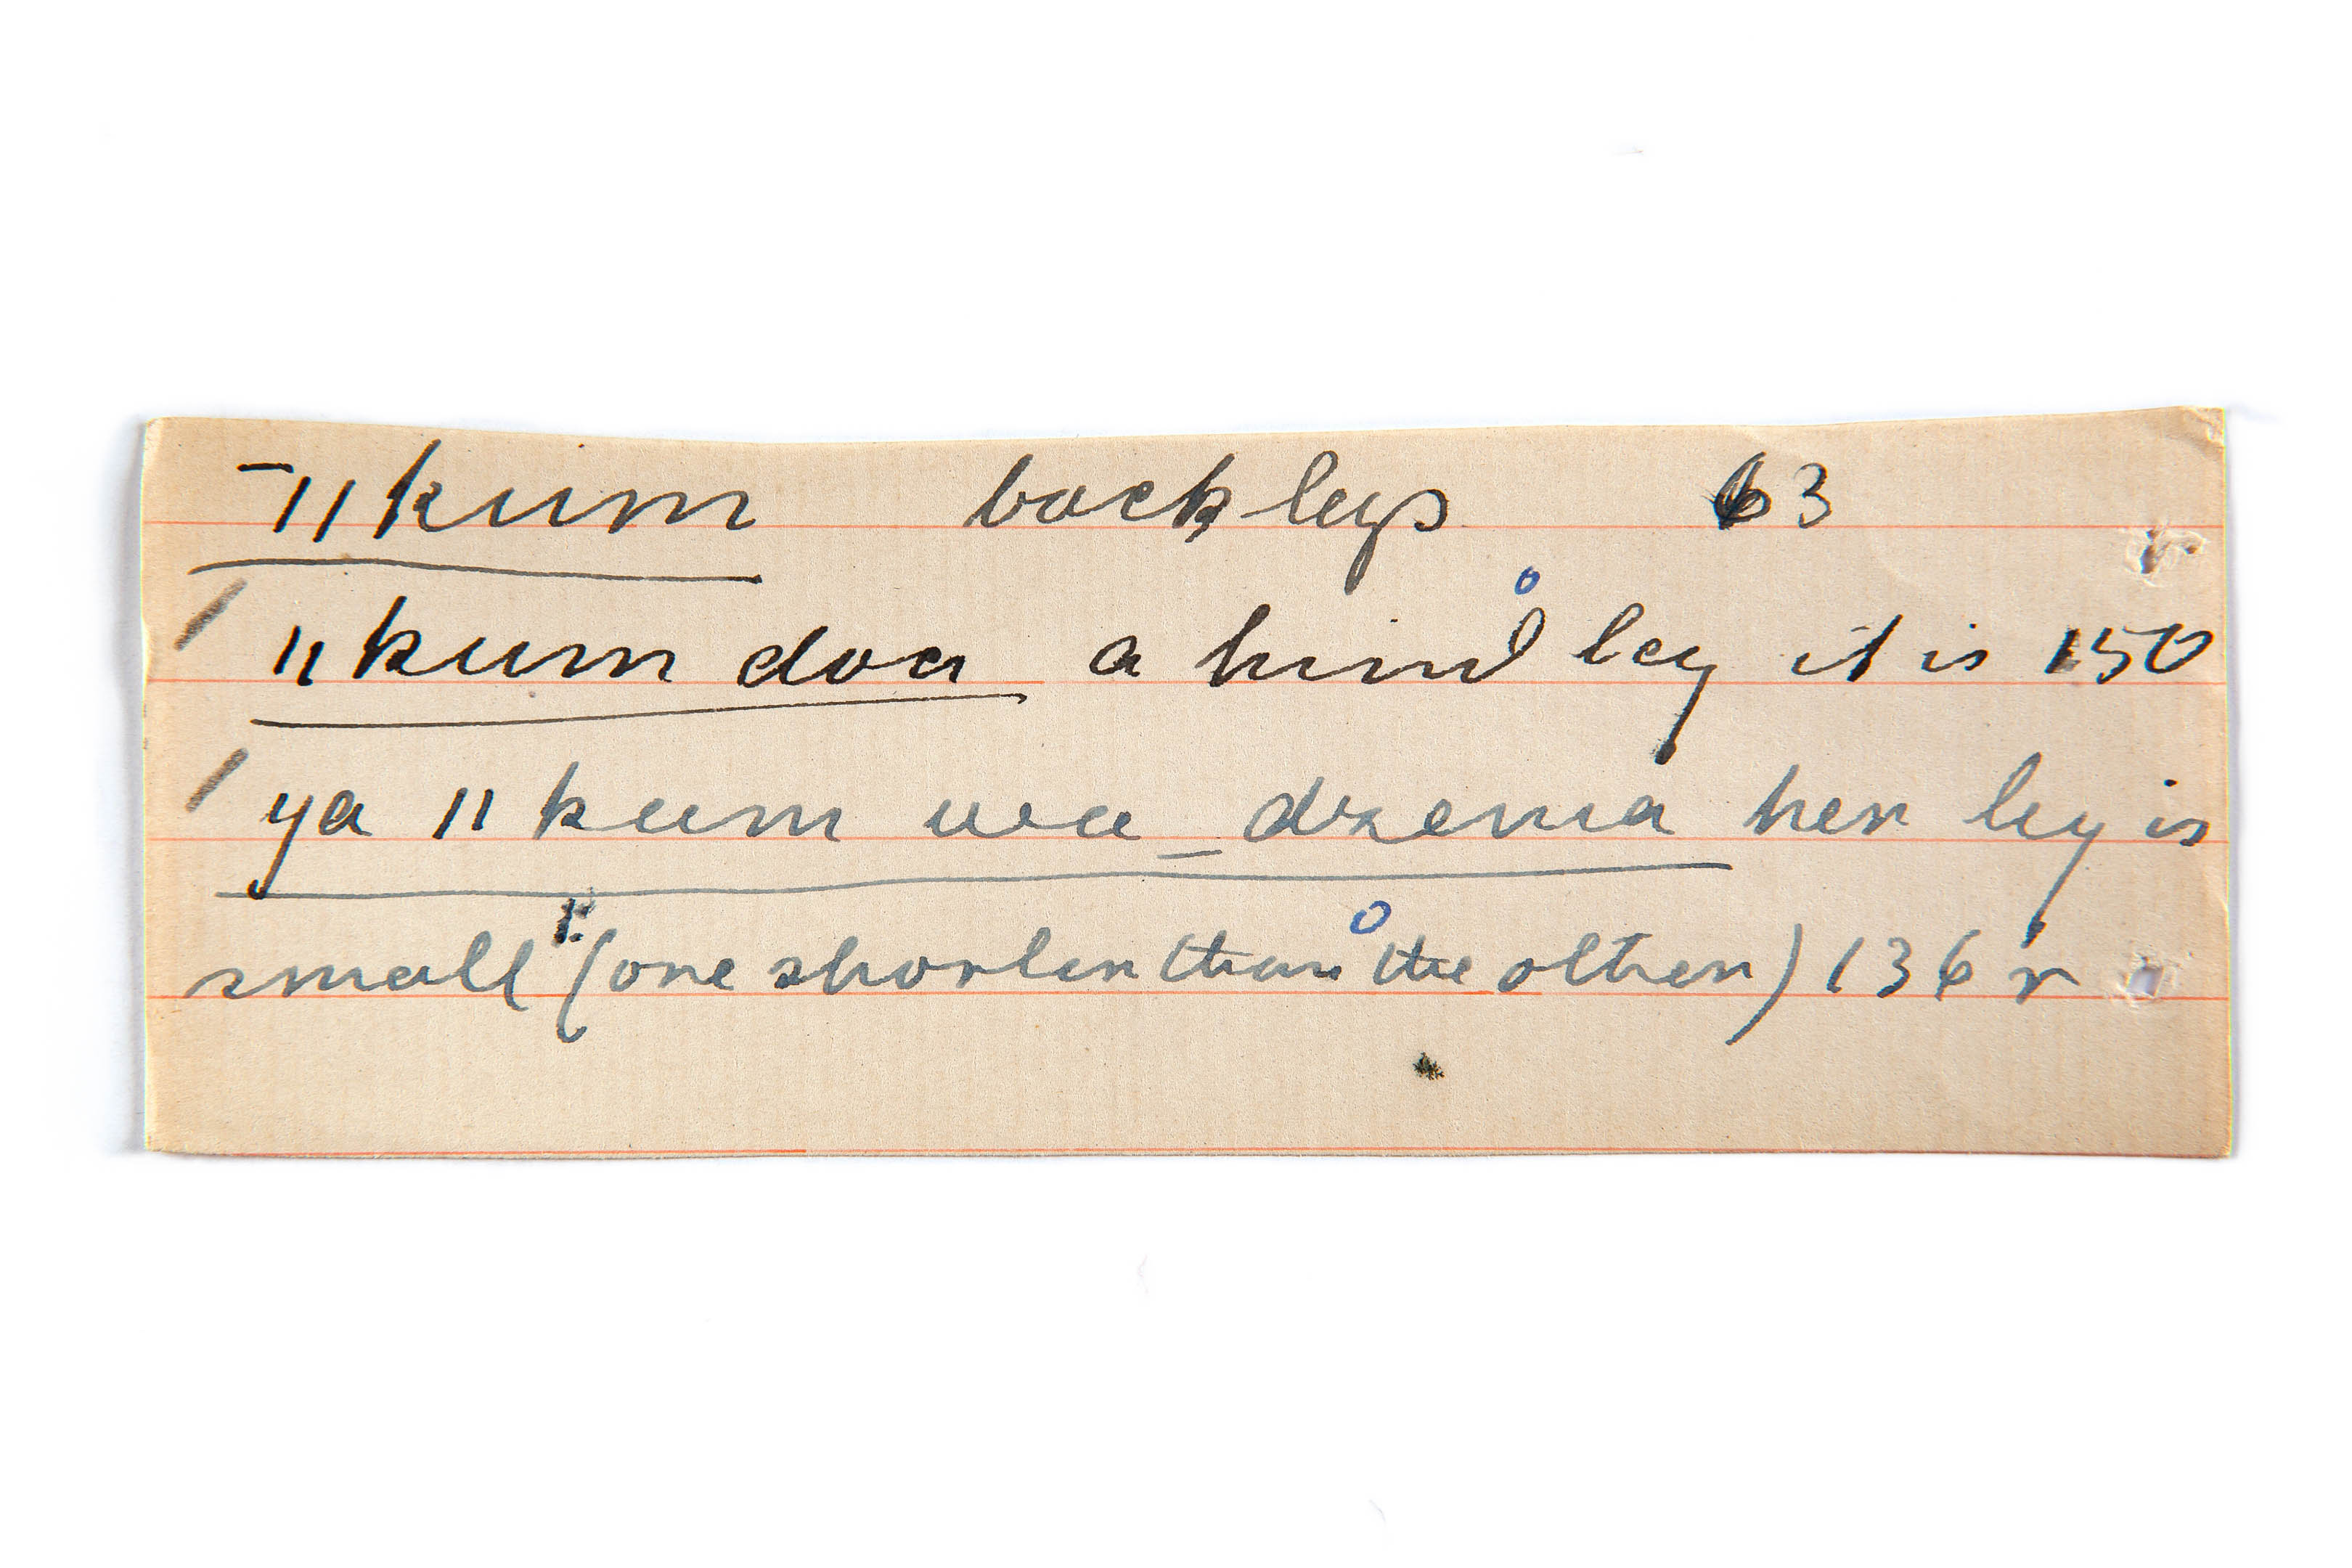 ‾ǁkum back legs 63
ǁkum doa a hind leg it is 150
ya ǁkum wa _dzema her leg is
small (one shorter than the other) 136 r